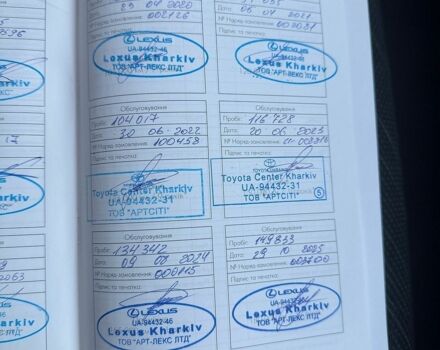 Дата: 23 04 2020
№ Наряд-замовлення 002126
Підпис та печатка:
LEXUS
UA-94432-46
Lexus Kharkiv
ТОВ "АРТ-ЛЕКС ЛТД"
№ Наряд-замовлення
Підпис та печатка:
LEXUS
UA-94432-46
Lexus Kharkiv
ТОВ "АРТ-ЛЕКС ЛТД"
Обслуговування
Пробіг: 104 017
Дата: 30 06 2022
№ Наряд-замовлення 100458
Підпис та печатка:
Toyota Center Kharkiv
UA-94432-31
ТОВ "АРТСІТІ"
Обслуговування
Пробіг: 116 728
Дата: 20 06 2023
№ Наряд-замовлення
Підпис та печатка:
Toyota Center Kharkiv
UA-94432-31
ТОВ "АРТСІТІ"
5
Обслуговування
Пробіг: 134 342
Дата: 09 08 2024
№ Наряд-замовлення
Підпис та печатка:
LEXUS
UA-94432-46
Lexus Kharkiv
ТОВ "АРТ-ЛЕКС ЛТД"
Обслуговування
Пробіг: 149 833
Дата: 29 10 2025
№ Наряд-замовлення
Підпис та печатка:
LEXUS
UA-94432-46
Lexus Kharkiv
ТОВ "АРТ-ЛЕКС ЛТД"